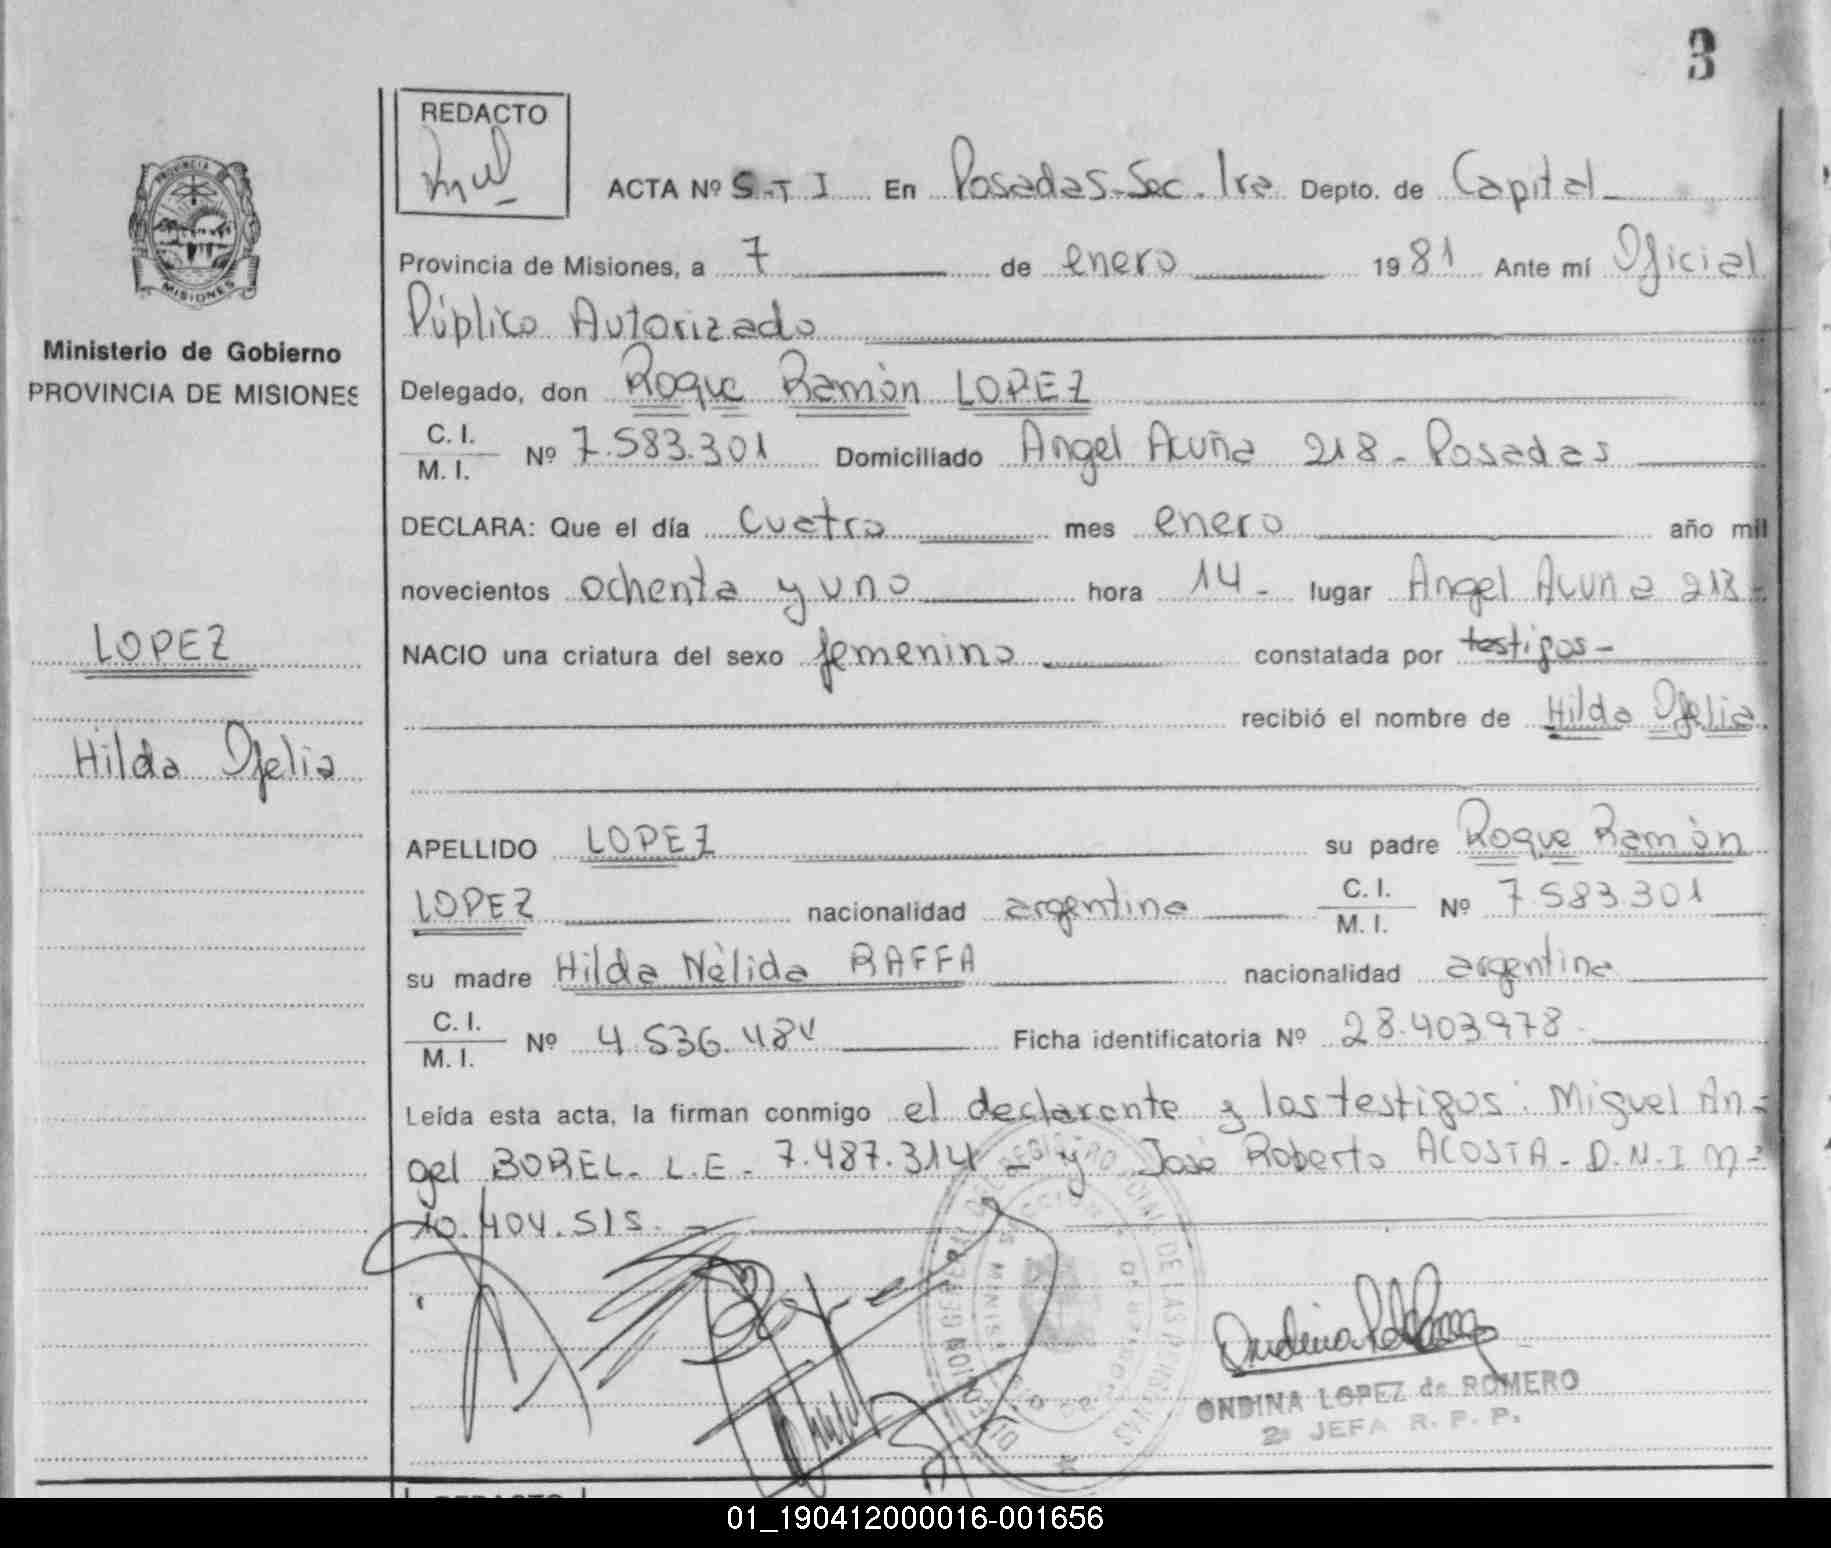 3
REDACTO
ACTA Nº S-T I En Posadas-Sec. 1ra Depto. de Capital
Provincia de Misiones, a 7 de enero 1981 Ante mí Oficial
Púplico Autorizado
Delegado, don Roque Ramón LOPEZ
C. I.
M. I. Nº 7.583.301 Domiciliado Angel Acuña 218 - Posadas
DECLARA: Que el día cuatro mes enero año mil
novecientos ochenta y uno hora 14 - lugar Angel Acuña 218 -
NACIO una criatura del sexo femenino constatada por testigos -
recibió el nombre de Hilda Ofelia
APELLIDO LOPEZ su padre Roque Ramón
LOPEZ nacionalidad argentina C. I.
M. I. Nº 7.583.301
su madre Hilda Nèlida RAFFA nacionalidad argentina
C. I.
M. I. Nº 4.536.484 Ficha identificatoria Nº 28.403.978
Leída esta acta, la firman conmigo el declarante y los testigos: Miguel An-
gel BOREL - L.E - 7.487.314 - y José Roberto ACOSTA - D.N.I Nº
10.404.515. -
ONDINA LOPEZ de ROMERO
2ª JEFA R. P. P.
PROVINCIA DE
MISIONES
Ministerio de Gobierno
PROVINCIA DE MISIONES
LOPEZ
Hilda Ofelia
REDACTO
01_190412000016-001656